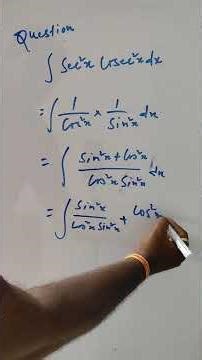 Question
∫ Sec²x Cosec²x dx
= ∫ 1/Cos²x × 1/Sin²x dx
= ∫ (Sin²x + Cos²x)/(Cos²x Sin²x) dx
= ∫ Sin²x/(Cos²x Sin²x) + Cos²x